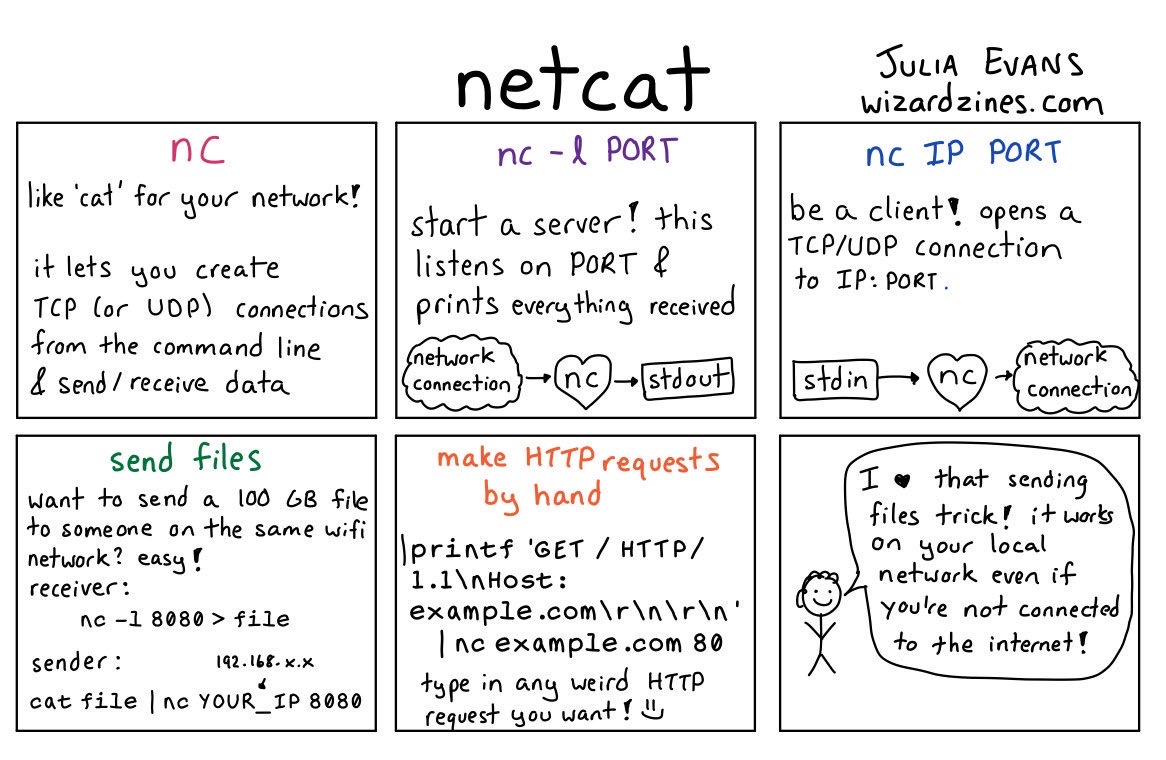 netcat
JULIA EVANS
wizardzines.com
nc
like 'cat' for your network!
it lets you create
TCP (or UDP) connections
from the command line
& send/receive data
nc -l PORT
start a server! this
listens on PORT &
prints everything received
network
connection
nc
stdout
nc IP PORT
be a client! opens a
TCP/UDP connection
to IP:PORT.
stdin
nc
network
connection
send files
want to send a 100 GB file
to someone on the same wifi
network? easy!
receiver:
nc -l 8080 > file
sender:
192.168.x.x
cat file | nc YOUR_IP 8080
make HTTP requests
by hand
printf 'GET / HTTP/
1.1\nHost:
example.com\r\n\r\n'
| nc example.com 80
type in any weird HTTP
request you want! :)
I ♥ that sending
files trick! it works
on your local
network even if
you're not connected
to the internet!